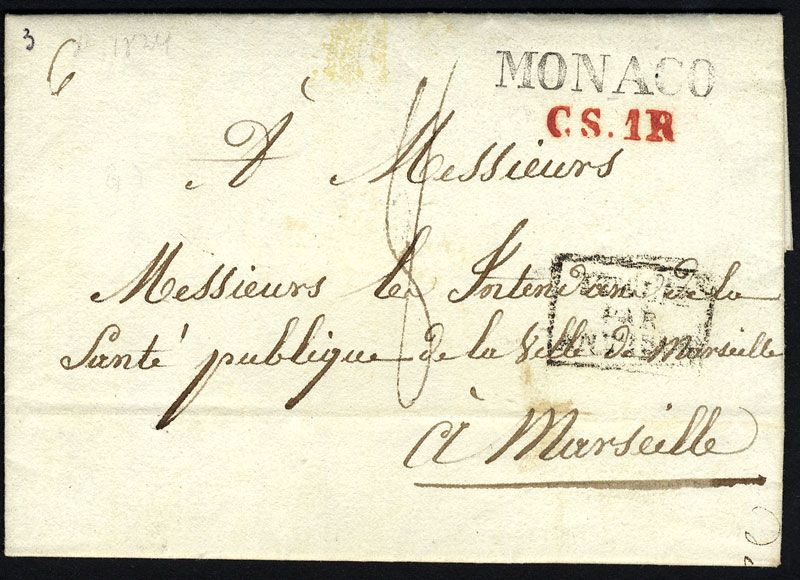 3
1824
MONACO
C.S.1R
8
À Messieurs
Messieurs les Intendans de la
PAR
Santé publique de la Ville de Marseille
ANTIBES
à Marseille